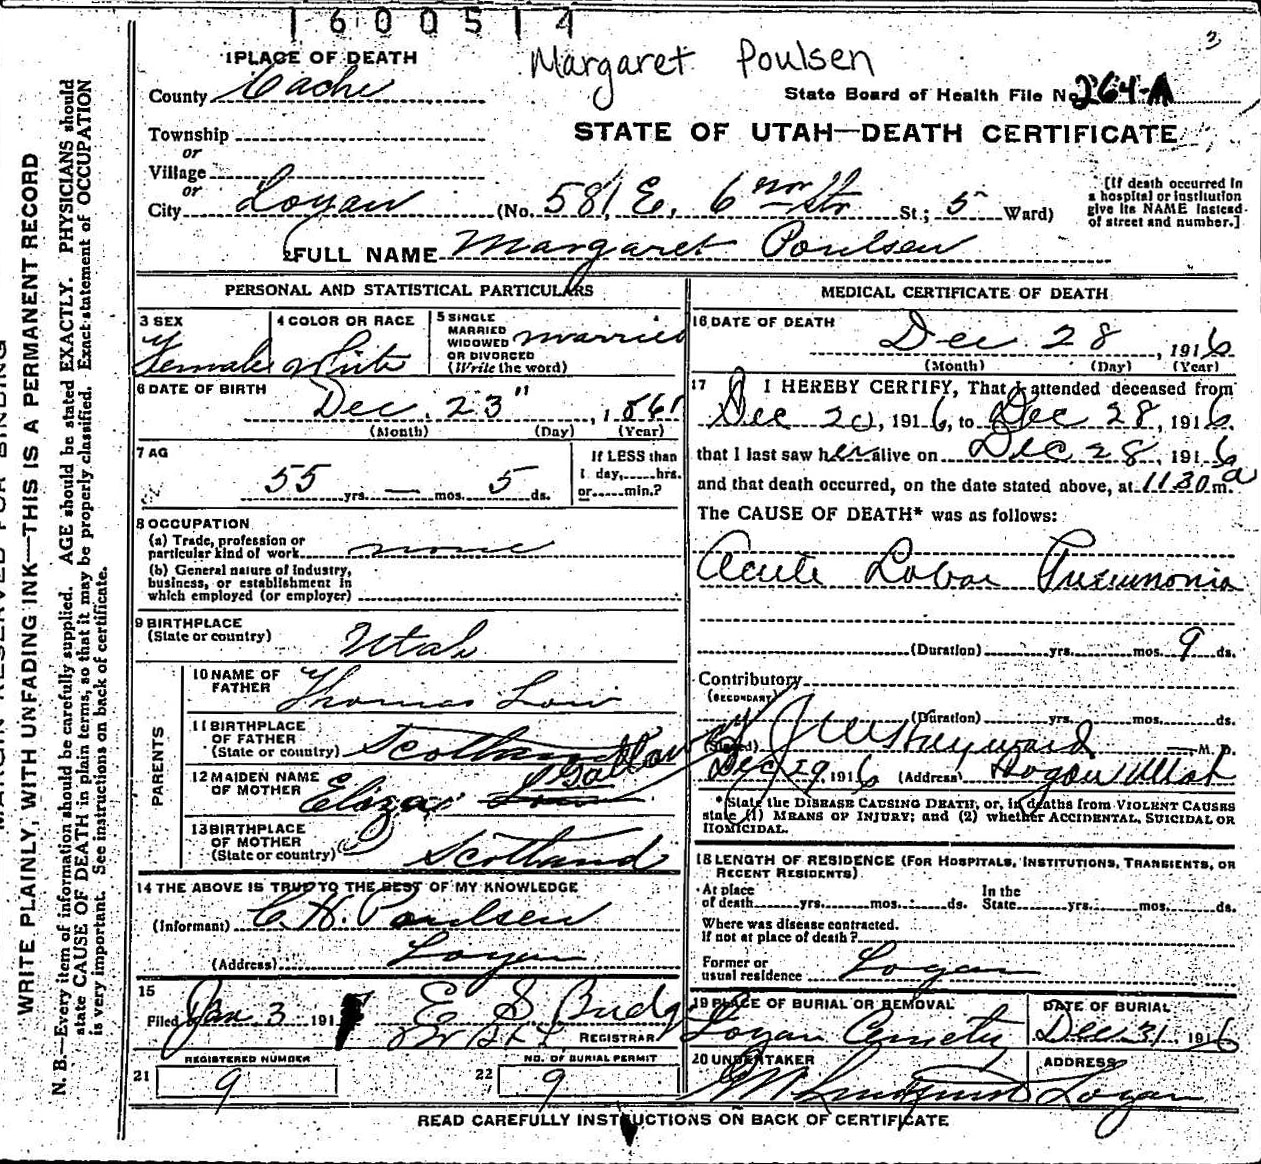 1600514
3
Margaret Poulsen
1 PLACE OF DEATH
County Cache
State Board of Health File No. 264-A
Township
or
STATE OF UTAH—DEATH CERTIFICATE
Village
or
City Logan (No. 581 E. 6 St.; 5 Ward)
[If death occurred in
a hospital or institution
give its NAME instead
of street and number.]
2 FULL NAME Margaret Poulsen
PERSONAL AND STATISTICAL PARTICULARS
3 SEX
Female
4 COLOR OR RACE
White
5 SINGLE
MARRIED
WIDOWED
OR DIVORCED
(Write the word)
married
6 DATE OF BIRTH
Dec. 23", 1861
(Month) (Day) (Year)
7 AG
55 yrs. — mos. 5 ds.
If LESS than
1 day, hrs.
or min.?
8 OCCUPATION
(a) Trade, profession or
particular kind of work none
(b) General nature of industry,
business, or establishment in
which employed (or employer)
9 BIRTHPLACE
(State or country) Utah
PARENTS
10 NAME OF
FATHER Thomas Low
11 BIRTHPLACE
OF FATHER
(State or country) Scotland
12 MAIDEN NAME
OF MOTHER Eliza
13 BIRTHPLACE
OF MOTHER
(State or country) Scotland
14 THE ABOVE IS TRUE TO THE BEST OF MY KNOWLEDGE
(Informant) C. H. Poulsen
(Address) Logan
15
Filed Jan 3 191 E S Budg
REGISTRAR
REGISTERED NUMBER
21 9
NO. OF BURIAL PERMIT
22 9
MEDICAL CERTIFICATE OF DEATH
16 DATE OF DEATH
Dec. 28, 1916
(Month) (Day) (Year)
17 I HEREBY CERTIFY, That I attended deceased from
Dec 20, 1916, to Dec 28, 1916.
that I last saw her alive on Dec 28, 1916
and that death occurred, on the date stated above, at 1130 a m.
The CAUSE OF DEATH* was as follows:
Acute Lobar Pneumonia
(Duration) yrs. mos. 9 ds.
Contributory
(SECONDARY)
(Duration) yrs. mos. ds.
(Signed) Hayward M. D.
Dec 29 1916 (Address) Logan Utah
*State the DISEASE CAUSING DEATH, or, in deaths from VIOLENT CAUSES
state (1) MEANS OF INJURY; and (2) whether ACCIDENTAL, SUICIDAL OR
HOMICIDAL.
18 LENGTH OF RESIDENCE (FOR HOSPITALS, INSTITUTIONS, TRANSIENTS, OR
RECENT RESIDENTS)
At place
of death yrs. mos. ds.
In the
State yrs. mos. ds.
Where was disease contracted.
If not at place of death?
Former or
usual residence Logan
19 PLACE OF BURIAL OR REMOVAL
Logan
DATE OF BURIAL
Dec 31 1916
20 UNDERTAKER
ADDRESS
Logan
READ CAREFULLY INSTRUCTIONS ON BACK OF CERTIFICATE
MARGIN RESERVED FOR BINDING
WRITE PLAINLY, WITH UNFADING INK—THIS IS A PERMANENT RECORD
N. B.—Every item of information should be carefully supplied. AGE should be stated EXACTLY. PHYSICIANS should
state CAUSE OF DEATH in plain terms, so that it may be properly classified. Exact statement of OCCUPATION
is very important. See instructions on back of certificate.